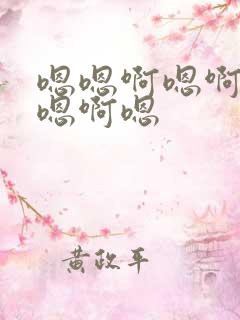 嗯嗯啊嗯啊
嗯啊嗯
黄政平